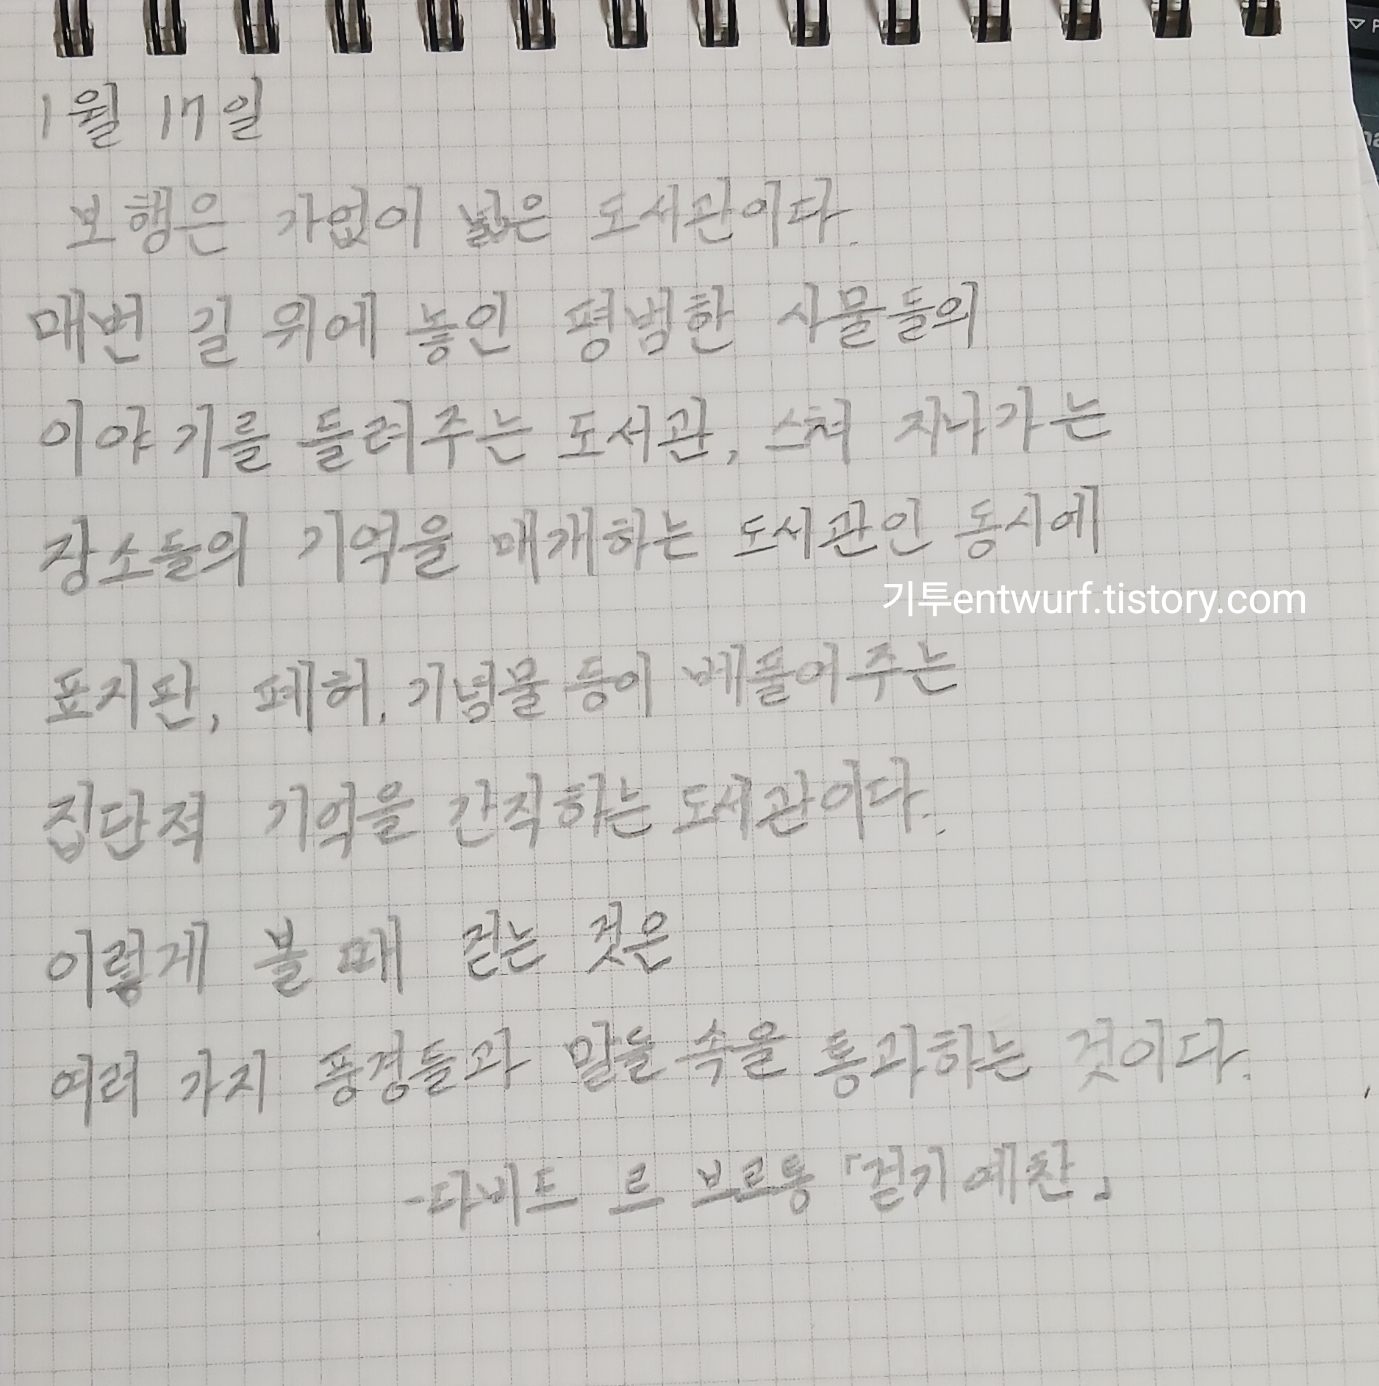 1월 17일
보행은 가없이 넓은 도서관이다.
매번 길 위에 놓인 평범한 사물들의
이야기를 들려주는 도서관, 스쳐 지나가는
장소들의 기억을 매개하는 도서관인 동시에
기투entwurf.tistory.com
표지판, 폐허, 기념물 등이 베풀어주는
집단적 기억을 간직하는 도서관이다.
이렇게 볼 때 걷는 것은
여러 가지 풍경들과 말들 속을 통과하는 것이다.
-다비드 르 브르통 「걷기예찬」